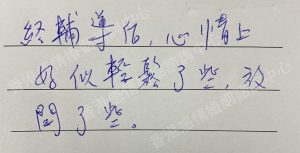 經輔導后,心情上
好似輕鬆了些,放
開了些。